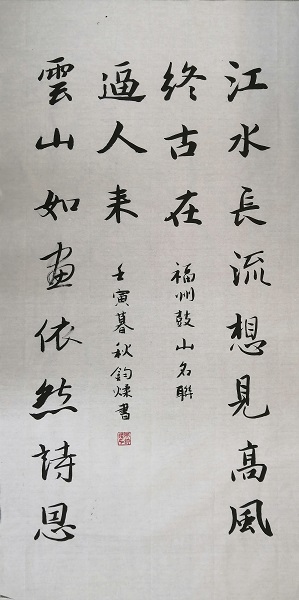 江水長流想見高風
終古在
福州鼓山名聯
雲山如畫依然詩思
逼人来
壬寅暮秋鈞書